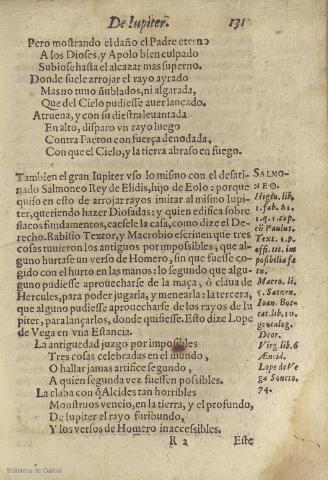 De Iupiter. 131
Pero mostrando el daño el Padre eterno
A los Dioses, y Apolo bien culpado
Subiose hasta el alcazar mas superno.
Donde suele arrojar el rayo ayrado
Mas no tuuo ñublados, ni algarada,
Que del Cielo pudiesse auer lançado.
Atruena, y con su diestra leuantada
En alto, disparo vn rayo luego
Contra Faeton con fuerça denodada,
Con que el Cielo, y la tierra abraso en fuego.
Tambien el gran Iupiter vso lo mismo con el desati-
nado Salmoneo Rey de Elidis, hijo de Eolo: porque
quiso en esto de arrojar rayos imitar al mismo Iupi-
ter, queriendo hazer Diosadas: y quien edifica sobre
flacos fundamentos, caesele la casa, como dize el De-
recho. Rabisio Texzor, y Macrobio escriuen que tres
cosas tuuieron los antiguos por impossibles; que al-
guno hurtasse vn verso de Homero, sin que fuesse co-
gido con el hurto en las manos: lo segundo que algu-
no pudiesse aprouecharse de la maça, ò claua de
Hercules, para poder jugarla, y menearla: la tercera,
que alguno pudiesse aprouecharse de los rayos de Iu
piter, para lançarlos, donde quisiesse. Esto dize Lope
de Vega en vna Estancia.
SALMO-
NEO.
Higin. lib.
1. fab. 61.
l. q. 1. cap.
cū Paulus.
Text. 1. p.
offi. tit. im
possibilia fa
tu.
Macro. li.
5. Satern.
Ioan. Boc-
cat. lib. 10.
genealog.
Deor.
Virg. lib. 6
Æneid.
Lope de Ve
ga Soneto
74.
La antiguedad juzgo por impossibles
Tres cosas celebradas en el mundo,
O hallar jamas artifice segundo,
A quien segunda vez fuessen possibles.
La claba con q̃ Alcides tan horribles
Monstruos vencio, en la tierra, y el profundo,
De Iupiter el rayo furibundo,
Y los versos de Homero inaccesibles.
R 2 Este
Biblioteca de Galicia